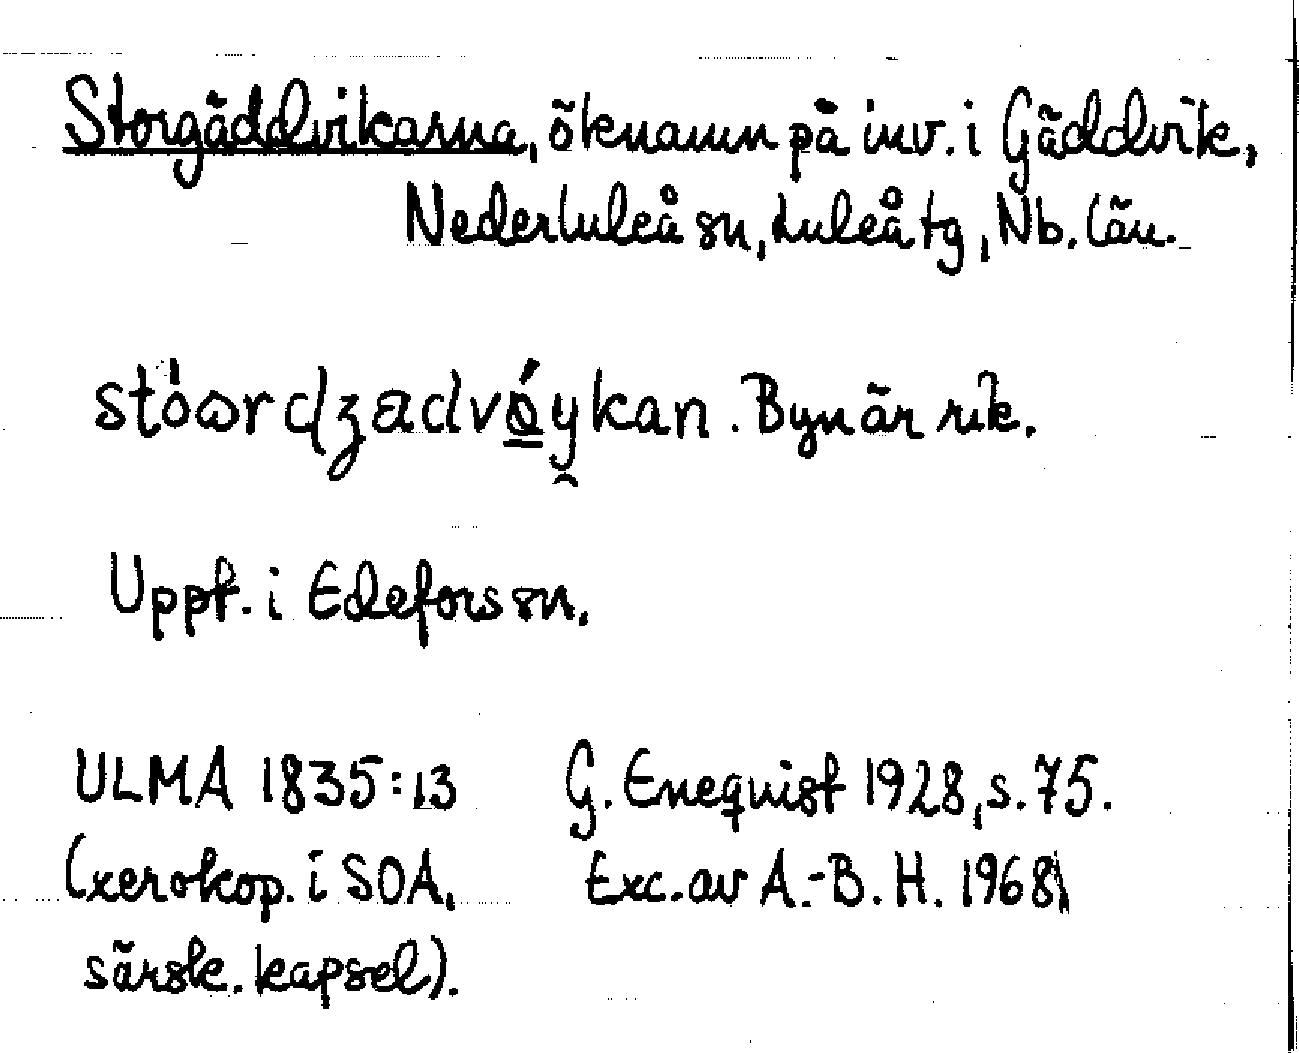 Storgäddvikarna, öknamn på inv. i Gäddvik,
Nederluleå sn, Luleå tg, Nb. län.
stóωrdʒadvǿ̳y̯kan. Byn är rik.
Uppt. i Edefors sn.
ULMA 1835:13 G. Enequist 1928, s. 75.
(xerokop. i SOA, Exc. av A.-B. H. 1968
särsk. kapsel).